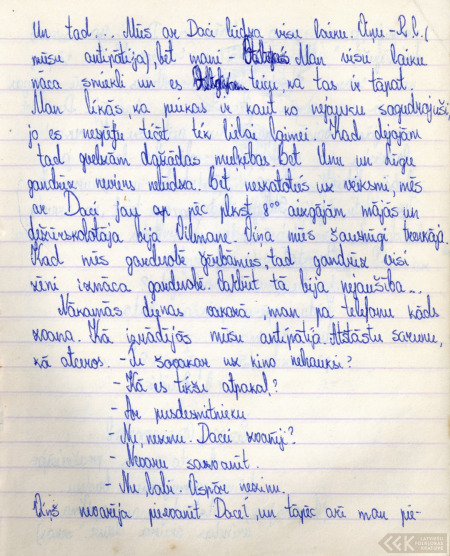 Un tad... Mūs ar Daci lūdza visu laiku. Viņu - R. L. (
mūsu antipātija), bet mani - Man visu laiku
nāca smiekli un es teicu, ka tas ir tāpat.
Man likās, ka puikas ir kaut ko nejauku sagudrojuši,
jo es nespēju ticēt tik lielai laimei. Kad dejojām
tad gvelzām dažādas muļķības. Bet Unu un Līgu
gandrīz neviens nelūdza. Bet neskatoties uz veiksmi, mēs
ar Daci jau pēc plkst. 8⁰⁰ aizgājām mājās un
dežūrskolotāja bija Vilmane. Viņa mūs šausmīgi
Kad mēs garderobē ģērbāmies, tad gandrīz visi
zēni iznāca garderobē. Varbūt tā bija nejaušība...
Nākamās dienas vakarā, man pa telefonu kāds
zvana. Kā izrādījās mūsu antipātija. Atstāstu sarunu,
kā atceros. - Tu šovakar uz kino nebrauksi?
- Kā es tikšu atpakaļ?
- Ar pusdesmitnieku
- Nu, nezinu. Dacei zvanīji?
- Nevaru sazvanīt.
- Nu, labi. Vispār nezinu.
Viņš nevarēja piezvanīt Dacei, un tāpēc arī man pie-
LATVIEŠU
FOLKLORAS
KRĀTUVE